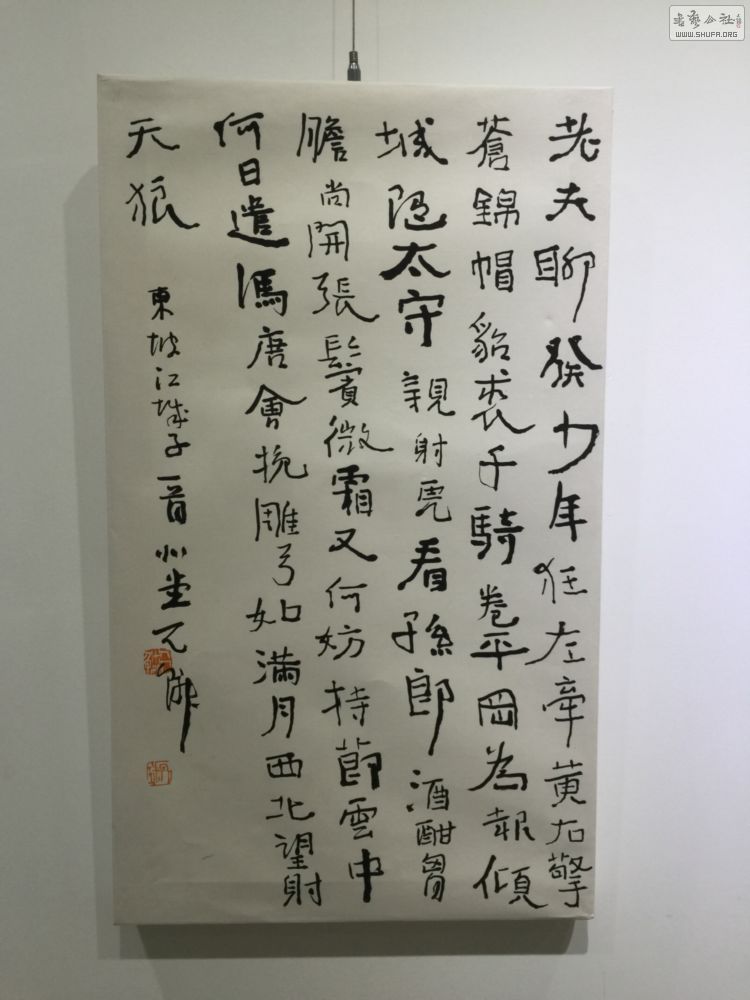 老夫聊發少年狂左牽黃右擎
蒼錦帽貂裘千騎卷平岡為報傾
城隨太守親射虎看孫郎酒酣胷
膽尚開張鬢微霜又何妨持節雲中
何日遣馮唐會挽雕弓如滿月西北望射
天狼
東坡江城子一首
書藝公社
WWW.SHUFA.ORG